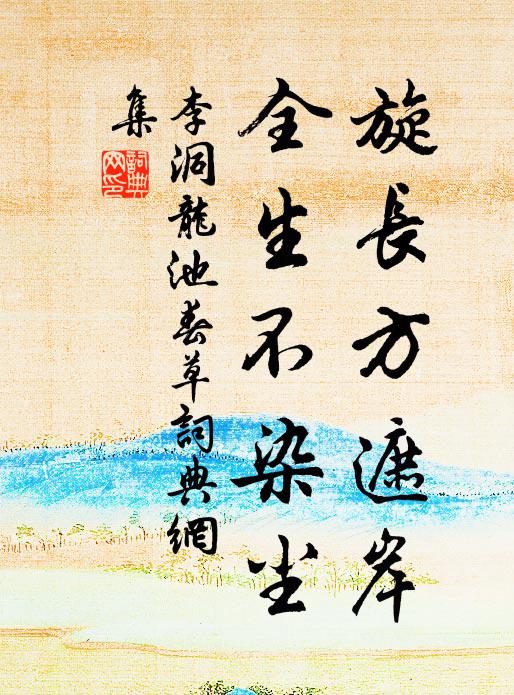 旋長方遮岸
全生不染尘
李洞龍池春草詞典網
集
詞典网印